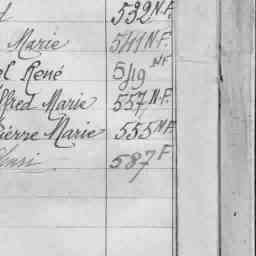 532 N.F.
Marie 541 N.F.
el René 549 NF
lfred Marie 557 N.F.
Pierre Marie 555 N.F.
587 F